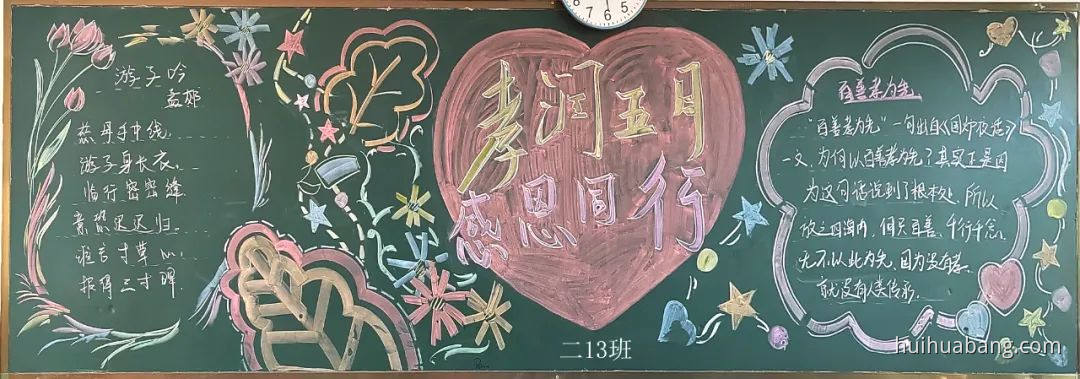 游子吟
孟郊
慈母手中线,
游子身上衣.
临行密密缝
意恐迟迟归.
谁言寸草心,
报得三寸晖.
孝润五月
感恩同行
百善孝为先
“百善孝为先”一句出自《围炉夜话》
一文,为何以百善孝为先?其实正是因
为这句话说到了根本处,所以
放之四海内,但凡百善,千行千念,
无不以此为先,因为没有孝,
就没有人类传承.
二13班
huihuabang.com
7 6 5